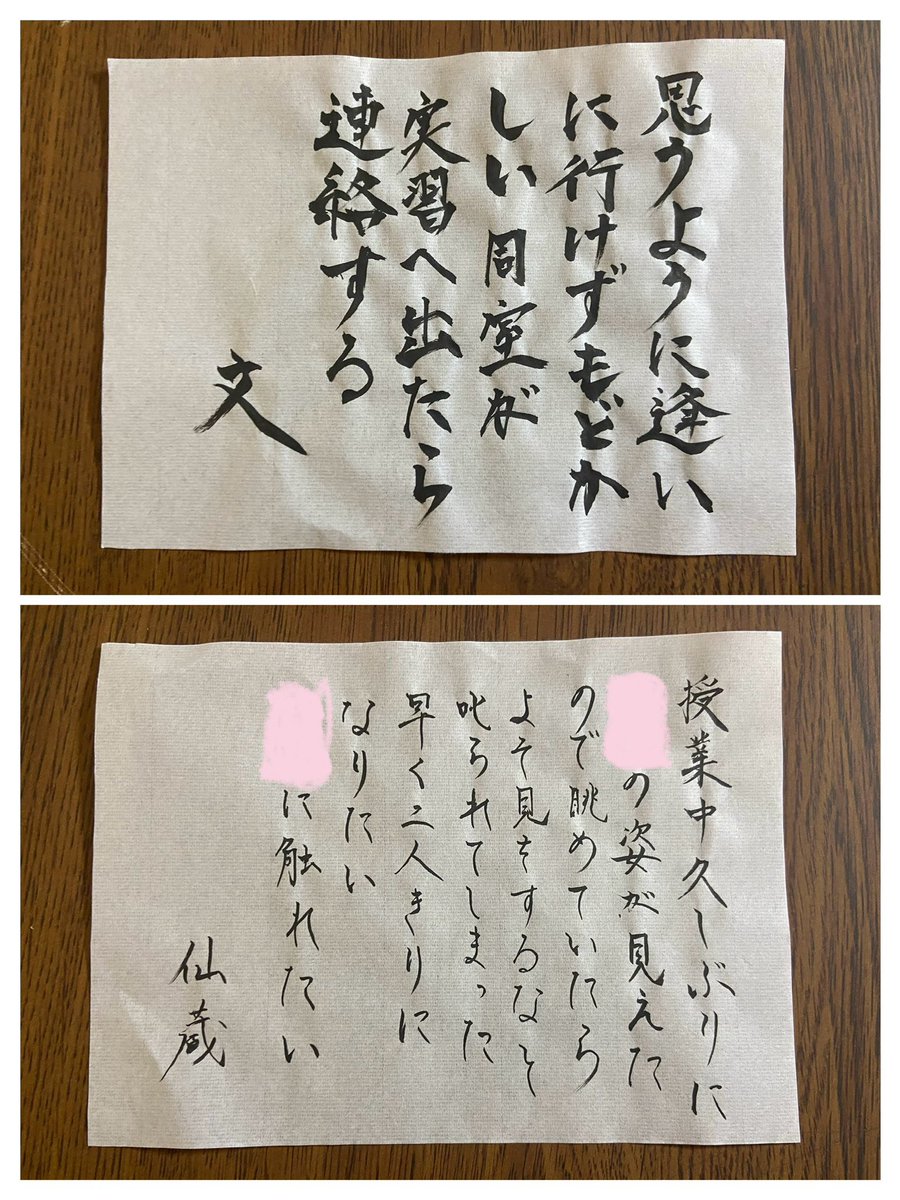 思うように逢い
に行けずもどか
しい 同室が
実習へ出たら
連絡する
文
授業中久しぶりに
の姿が見えた
ので眺めていたら
よそ見をするなと
叱られてしまった
早く二人きりに
なりたい
に触れたい
仙蔵